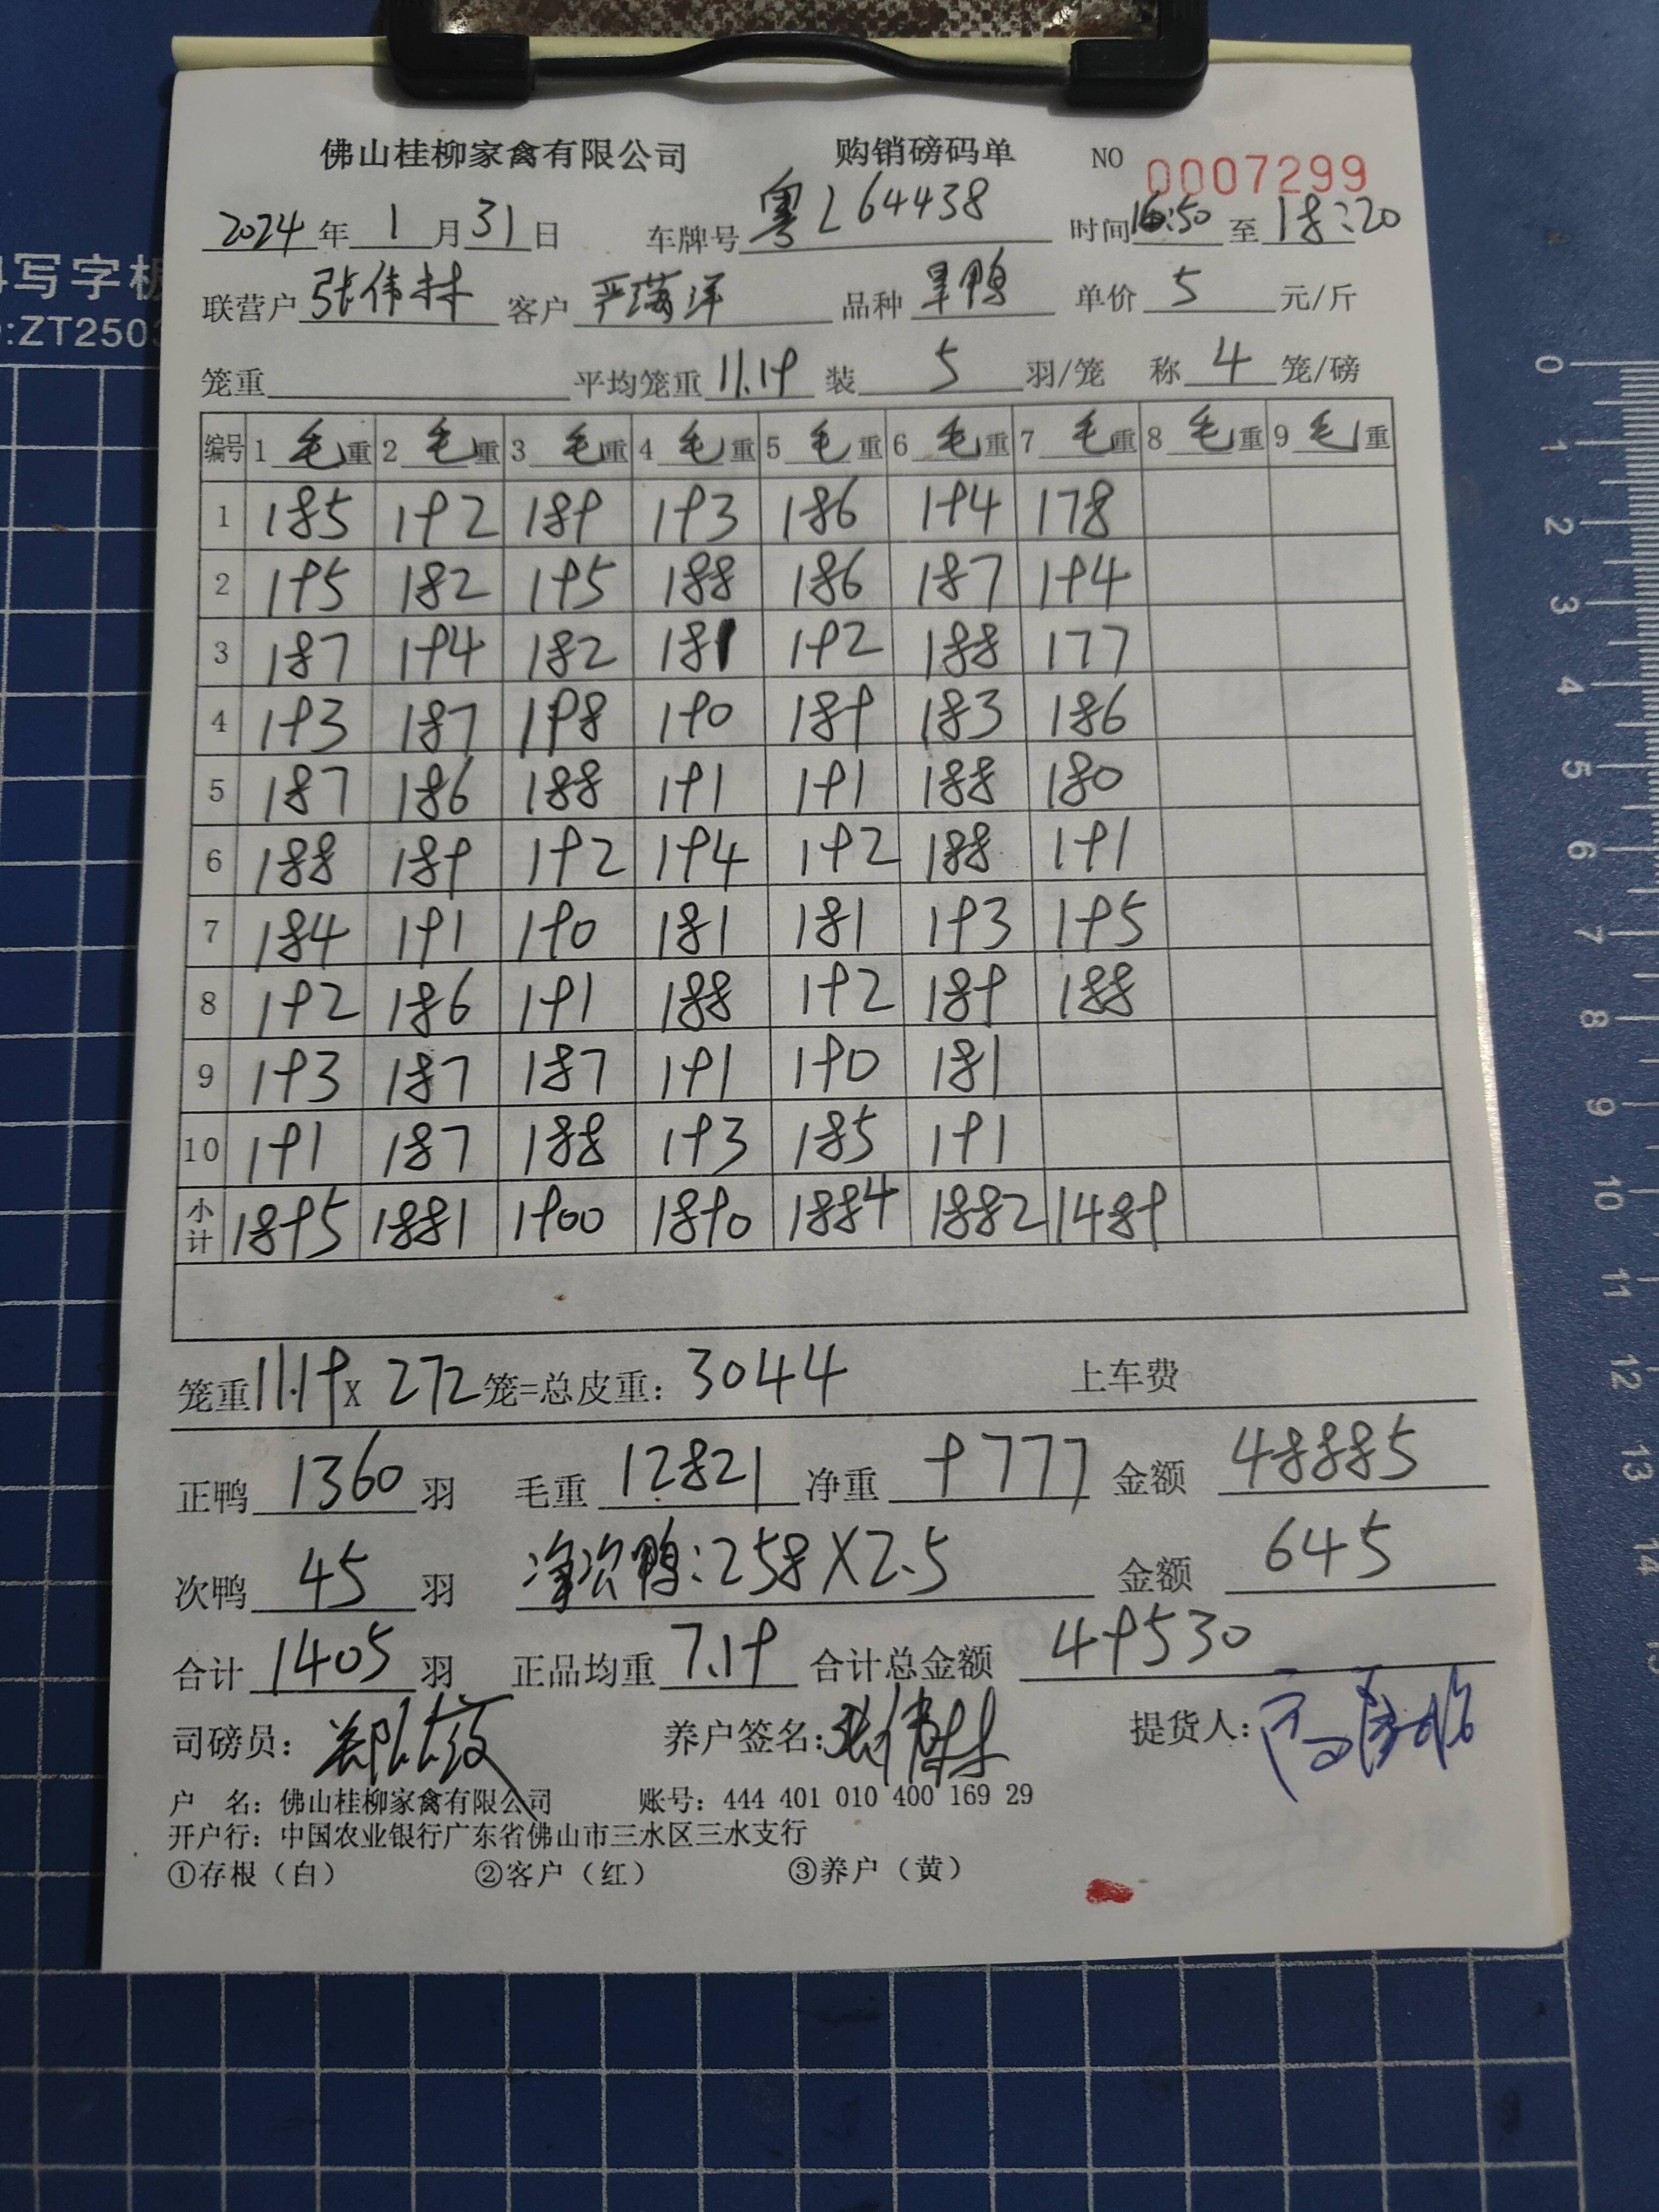 佛山桂柳家禽有限公司 购销磅码单 NO 0007299
2024年1月31日 车牌号粤L64438 时间16:50至18:20
写字板
联营户张伟林 客户严满洋 品种旱鸭 单价5元/斤
:ZT2503
笼重 平均笼重11.19装5羽/笼 称4笼/磅
编号 1毛重 2毛重 3毛重 4毛重 5毛重 6毛重 7毛重 8毛重 9毛重
1 185 192 189 193 186 194 178
2 195 182 195 188 186 187 194
3 187 194 182 181 192 188 177
4 193 187 198 190 189 183 186
5 187 186 188 191 191 188 180
6 188 189 192 194 192 188 191
7 184 191 190 181 181 193 195
8 192 186 191 188 192 189 188
9 193 187 187 191 190 181
10 191 187 188 193 185 191
小计 1895 1881 1900 1890 1884 1882 1489
笼重11.19X272笼=总皮重:3044 上车费
正鸭1360羽 毛重12821净重9777金额48885
次鸭45羽 净次鸭:258X2.5 金额645
合计1405羽 正品均重7.19合计总金额49530
司磅员: 养户签名:张伟林 提货人:
户 名:佛山桂柳家禽有限公司 账号:444 401 010 400 169 29
开户行:中国农业银行广东省佛山市三水区三水支行
①存根(白) ②客户(红) ③养户(黄)
0 1 2 3 4 5 6 7 8 9 10 11 12 13 14 15